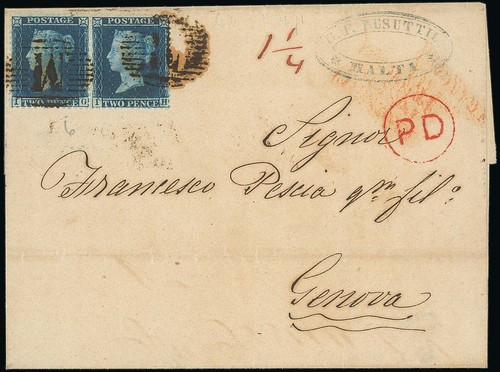 POSTAGE POSTAGE
I G TWO PENCE I H TWO PENCE
M
1 1/4
MALTA
PD
Signor
Francesco Pescia qm filo.
Genova